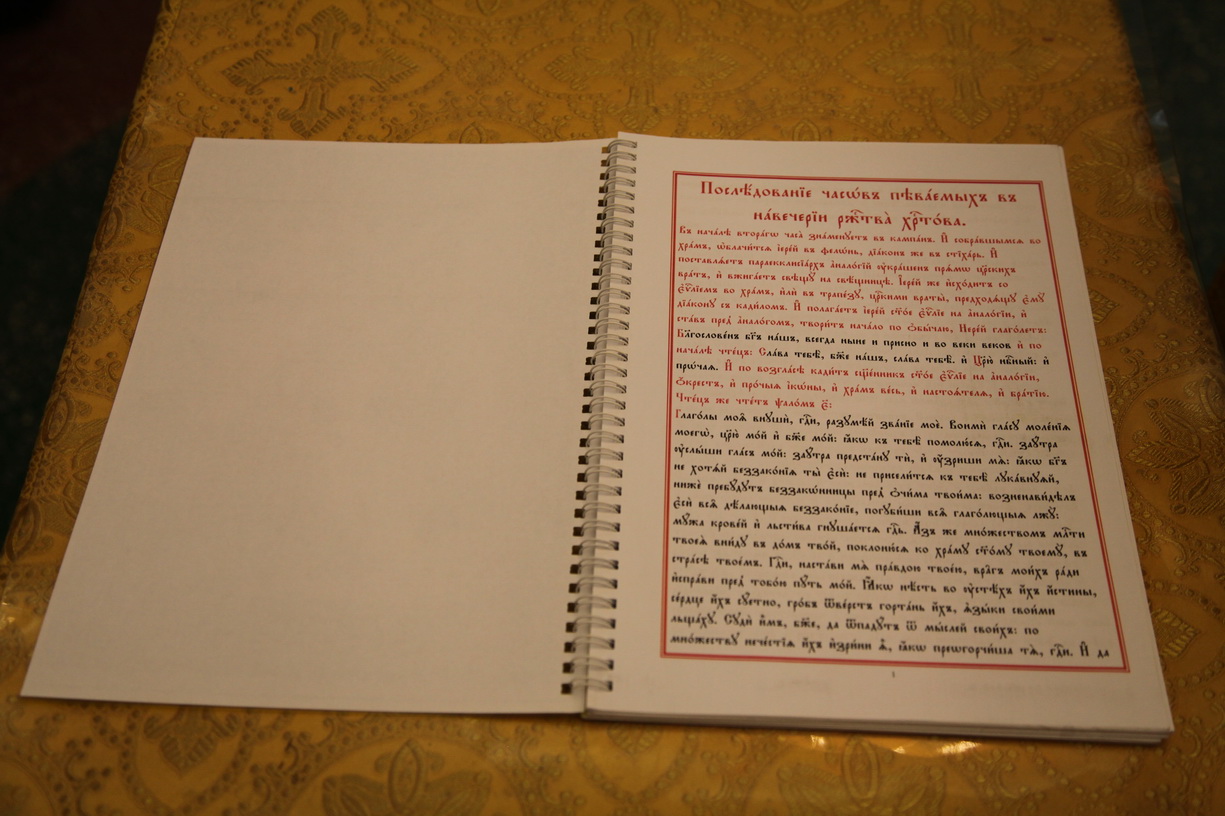 Послѣ́дованїе часѡ́въ пѣва́емыхъ въ
на́вечерїи рж҃тва̀ хрⷭ҇то́ва.
Въ нача́лѣ втора́гѡ часа̀ зна́менуетъ въ кампа́нъ. И҆ собра́вшымсѧ во
хра́мъ, ѡ҆блачи́тсѧ і҆ере́й въ фелѡ́нь, дїа́конъ же въ стїха́рь. И҆
поставлѧ́етъ параекклисїа́рхъ а҆нало́гїй ѹ҆кра́шенъ прѧ́мѡ цр҃скихъ
вра́тъ, и҆ вжига́етъ свѣщꙋ̀ на свѣ́щницѣ. І҆ере́й же и҆схо́дитъ со
є҆ѵⷢ҇лїемъ во хра́мъ, и҆лѝ въ трапе́зꙋ, цр҃кими враты̀, предходѧ́щꙋ є҆мꙋ̀
дїа́конꙋ съ кади́ломъ. И҆ полага́етъ і҆ере́й ст҃о́е є҆ѵⷢ҇лїе на а҆нало́гїи, и҆
ста́въ пред̾ а҆нало́гомъ, твори́тъ нача́ло по ѻ҆бы́чаю, Иерей глаго́летъ:
Бл҃гослове́нъ бг҃ъ на́шъ, всегда ныне и присно и во веки веков и҆ по
нача́лѣ чте́цъ: Сла́ва тебѣ̀, бж҃е на́шъ, сла́ва тебѣ̀. и҆ Цр҃ю̀ нб҇ный: и҆
прѡ́чаѧ. И҆ по во́згласѣ кади́тъ сщ҃е́нникъ ст҃о́е є҆ѵⷢ҇лїе на а҆нало́гїи,
ѻ҆́крестъ, и҆ про́чыѧ і҆кѡ́ны, и҆ хра́мъ ве́сь, и҆ настоѧ́телѧ, и҆ бра́тїю.
Чте́цъ же чте́тъ ѱало́мъ є҃:
Глаго́лы моѧ̑ внꙋшѝ, гдⷭ҇и, разꙋмѣ́й зва́нїе моѐ. Вонмѝ гла́сꙋ моле́нїѧ
моегѡ̀, цр҃ю̀ мо́й и҆ бж҃е мо́й: ꙗ҆́кѡ къ тебѣ̀ помолю́сѧ, гдⷭ҇и. заꙋтра
ѹ҆слы́ши гла́съ мо́й: заꙋтра предста́нꙋ тѝ, и҆ ѹ҆́зриши мѧ̀: ꙗ҆́кѡ бг҃ъ
не хотѧ́й беззако́нїѧ ты̀ є҆сѝ: не присели́тсѧ къ тебѣ̀ лꙋка́внꙋѧй,
нижѐ пребꙋ́дꙋтъ беззакѡ́нницы пред̾ ѻ҆чи́ма твои́ма: возненави́дѣлъ
є҆сѝ всѧ̑ дѣ́лающыѧ беззако́нїе, погꙋби́ши всѧ̑ глаго́лющыѧ лжꙋ̀:
мꙋ́жа крове́й и҆ льсти́ва гнꙋша́етсѧ гдⷭ҇ь. А҆́зъ же мно́жествомъ млⷭ҇ти
твоеѧ̀ вни́дꙋ въ до́мъ тво́й, поклоню́сѧ ко хра́мꙋ ст҃о́мꙋ твоемꙋ̀, въ
стра́сѣ твое́мъ. Гдⷭ҇и, наста́ви мѧ̀ пра́вдою твое́ю, вра̑гъ мои́хъ ра́ди
и҆спра́ви пред̾ тобо́ю пꙋ́ть мо́й. Ꙗ҆́кѡ нѣ́сть во ѹ҆стѣ́хъ и҆́хъ и҆́стины,
се́рдце и҆́хъ сꙋ́етно, гро́бъ ѿве́рстъ горта́нь и҆́хъ, ѧ҆зы́ки свои́ми
льща́хꙋ. Сꙋдѝ и҆̀мъ, бж҃е, да ѿпадꙋ́тъ ѿ мы́слей свои́хъ: по
мно́жествꙋ нече́стїѧ и҆́хъ и҆зри́ни ѧ҆̀, ꙗ҆́кѡ преѡгорчи́ша тѧ̀, гдⷭ҇и. И҆ да
1